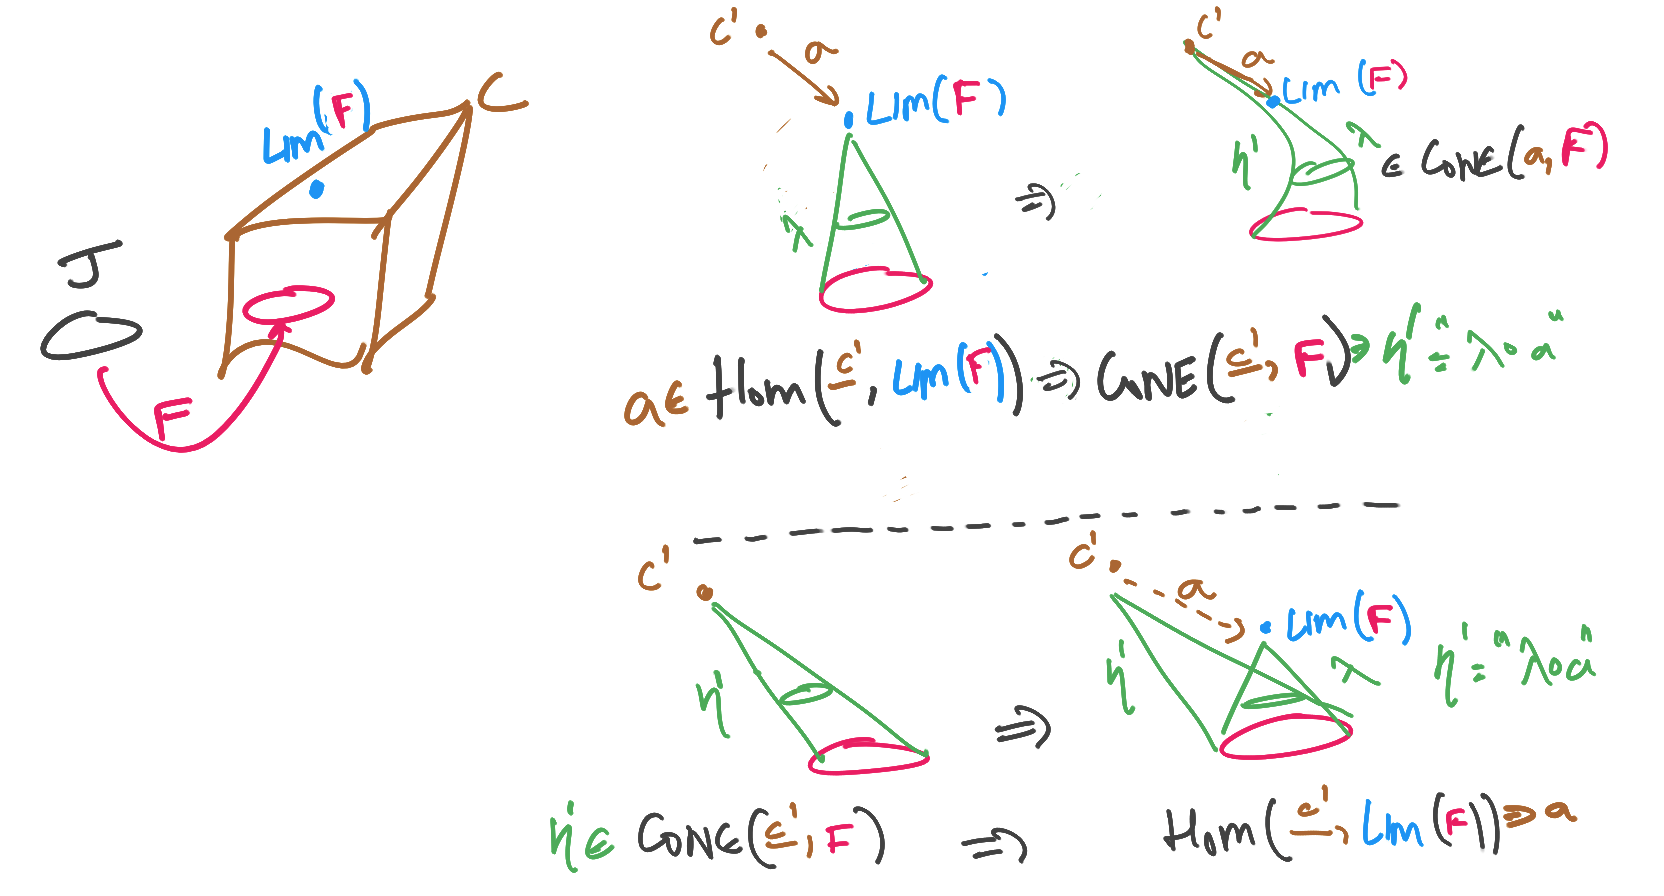 C
Lim(F)
J
F
c'
a
Lim(F)
λ
⇒
c'
a
Lim(F)
η'
λ
∈ CONE(a, F)
a ∈ Hom(c', Lim(F)) ⇒ CONE(c', F) ∋ η' = "λ∘a"
c'
η'
⇒
c'
a
Lim(F)
η'
λ
η' = "λ∘a"
η' ∈ CONE(c', F) ⇒ Hom(c', Lim(F)) ∋ a